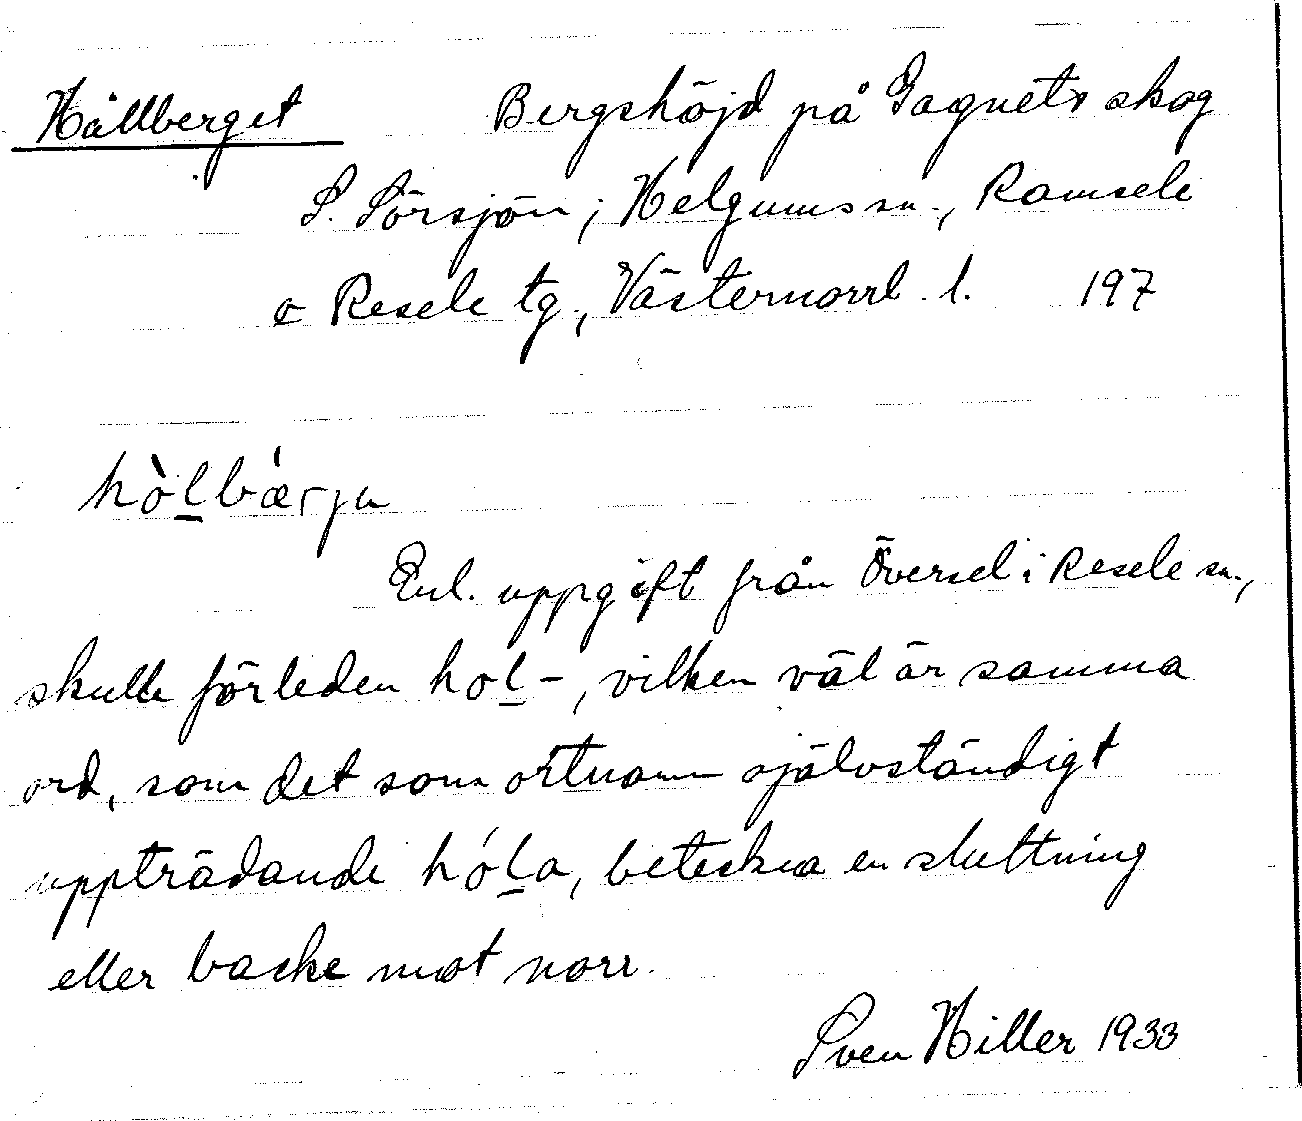 Hållberget Bergshöjd på Gagnets skog
S. Sörsjön; Helgums sn., Ramsele
o Resele tg, Västernorrl. l. 197
hòḻbǽrja
Enl. uppgift från Översel i Resele sn.,
skulle förleden hoḻ-, vilken väl är samma
ord, som det som ortnamn självständigt
uppträdande hóḻa, beteckna en sluttning
eller backe mot norr.
Sven Hiller 1933